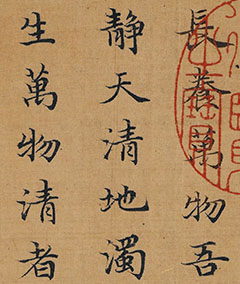 長養萬物吾
靜天清地濁
生萬物清者